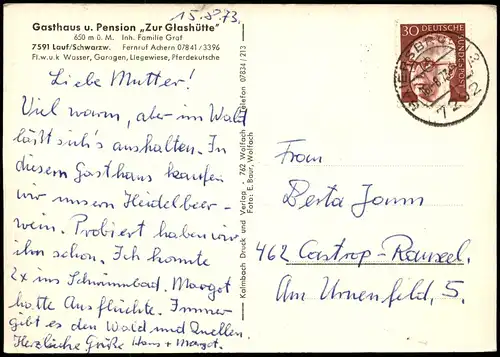 15.8.73.
Gasthaus u. Pension „Zur Glashütte"
650 m ü. M. Inh. Familie Graf
7591 Lauf/Schwarzw. Fernruf Achern 07841/3396
Fl. w. u. k Wasser, Garagen, Liegewiese, Pferdekutsche
Liebe Mutter!
Viel warm, aber im Wald
läßt sich's aushalten. In
diesem Gasthaus kaufen
wir unsern Heidelbeer-
wein. Probiert haben wir
ihn schon. Ich konnte
2x ins Schwimmbad. Margot
hatte Ausflüchte. Immer
gibt es den Wald und Quellen.
Herzliche Grüße Hans + Margot.
Kalmbach Druck und Verlag - 762 Wolfach - Telefon 07834/213
Foto: E. Baur, Wolfach
30
DEUTSCHE BUNDESPOST
7592
Frau
Berta Jonm
462 Castrop-Rauxel
Am Urnenfeld, 5.